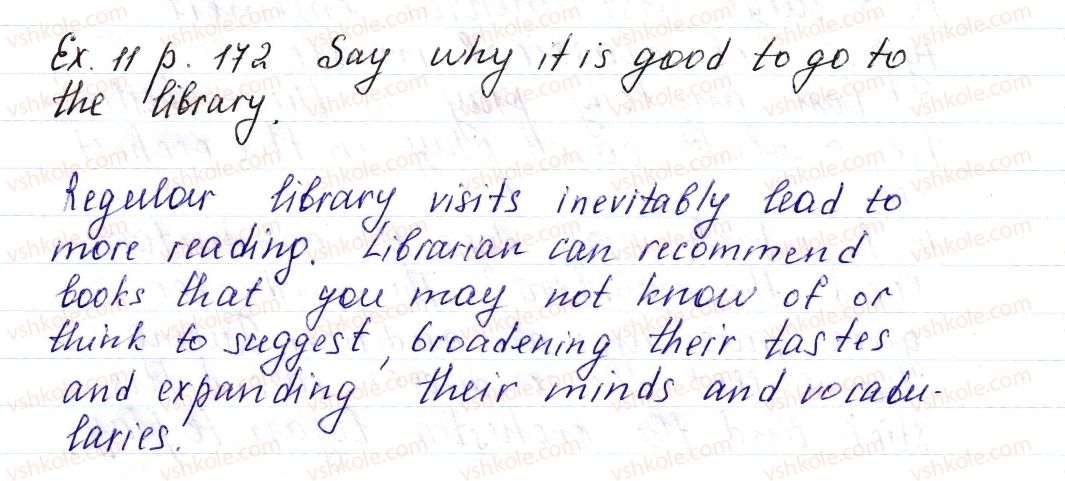 Ex. 11 p. 172 Say why it is good to go to
the library.
Regular library visits inevitably lead to
more reading. Librarian can recommend
books that you may not know of or
think to suggest, broadening their tastes
and expanding their minds and vocabu-
laries.